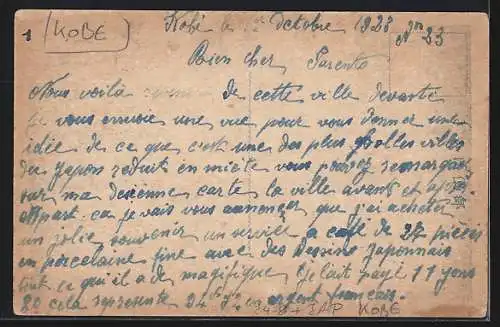 1 (KOBE)
Kobé le Octobre 1923 N° 23
Bien cher Parents
Nous voilà de cette ville devasté
je vous envoie une vue pour vous donner une
idée de ce que c'est une des plus belles villes
du Japon reduit en miète vous pouvez remarquer
sur ma deuxième carte la ville avant et après
appart ça je vais vous annoncer que j'ai acheter
un jolie souvenir un service a café de 27 pièces
en porcelaine fine avec des Dessins Japonnais
tout ce qu'il a de magifique je l'ait payé 11 yens
20 cela represente 94 en argent français.
KOBE